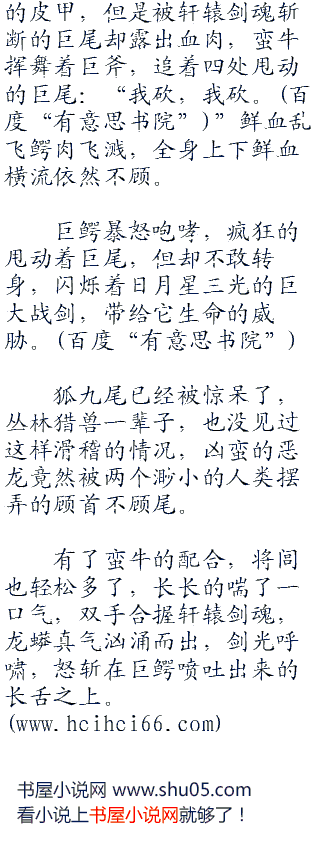 的皮甲，但是被轩辕剑魂斩
断的巨尾却露出血肉，蛮牛
挥舞着巨斧，追着四处甩动
的巨尾：“我砍，我砍。(百
度“有意思书院”)”鲜血乱
飞鳄肉飞溅，全身上下鲜血
横流依然不顾。
巨鳄暴怒咆哮，疯狂的
甩动着巨尾，但却不敢转
身，闪烁着日月星三光的巨
大战剑，带给它生命的威
胁。(百度“有意思书院”)
狐九尾已经被惊呆了，
丛林猎兽一辈子，也没见过
这样滑稽的情况，凶蛮的恶
龙竟然被两个渺小的人类摆
弄的顾首不顾尾。
有了蛮牛的配合，将闾
也轻松多了，长长的喘了一
口气，双手合握轩辕剑魂，
龙蟒真气汹涌而出，剑光呼
啸，怒斩在巨鳄喷吐出来的
长舌之上。
(www.hcihci66.com)
书屋小说网 www.shu05.com
看小说上书屋小说网就够了！